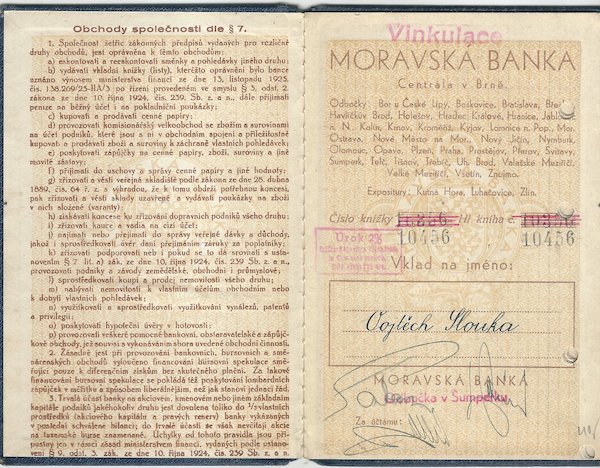 Obchody společnosti dle § 7.
1. Společnost šetříc zákonných předpisů vydaných pro rozličné
druhy obchodů, jest oprávněna k těmto obchodům:
a) eskontovati a reeskontovati směnky a pohledávky jiného druhu;
b) vydávati vkladní knížky (listy), kteréžto oprávnění bylo bance
uznáno výnosem ministerstva financí ze dne 13. listopadu 1925,
čís. 138.209/25-IIA/3 po řízení provedeném ve smyslu § 3. odst. 2.
zákona ze dne 10. října 1924, čís. 239 Sb. z. a n., dále přijímati
peníze na běžný účet i na pokladniční poukázky;
c) kupovati a prodávati cenné papíry;
d) provozovati komisionářský velkoobchod se zbožím a surovinami
na účet podniků, které jsou s ní v obchodním spojení a příležitostně
kupovati a prodávati zboží a suroviny k záchraně vlastních pohledávek;
e) poskytovati zápůjčky na cenné papíry, zboží, suroviny a jiné
movité zástavy;
f) přijímati do úschovy a správy cenné papíry a jiné hodnoty;
g) zřizovati a vésti veřejná skladiště podle zákona ze dne 28. dubna
1889, čís. 64 ř. z. s výhradou, že k tomu obdrží potřebnou koncesi,
pak zřizovati a vésti sklady uzavřené a vydávati poukázky na zboží
v nich složené (varanty);
h) získávati koncese ku zřizování dopravních podniků všeho druhu;
i) zřizovati kauce a vadia na cizí účet;
j) najímati nebo přejímati do správy veřejné dávky a důchody,
jakož i sprostředkovati úvěr dani přejímáním záruky za poplatníky;
k) zřizovati podporovati neb i pokud se to dá srovnati s ustanovením
§ 7 lit. a) zák. ze dne 10. října 1924, čís. 239 Sb. z. a n.,
provozovati podniky a závody zemědělské, obchodní i průmyslové;
l) sprostředkovati koupi a prodej nemovitostí všeho druhu;
m) nabývati nemovitostí k vlastním účelům obchodním nebo
k dobytí vlastních pohledávek;
n) využitkovati a sprostředkovati využitkování vynálezů, patentů
a privilegií;
o) poskytovati hypoteční úvěry v hotovosti;
p) provozovati veškeré pomocné bankovní, obstaravatelské a zápůjčkové
obchody, jež souvisí s vykonáváním shora uvedené obchodní činnosti.
2. Zásadně jest při provozování bankovních, bursovních a směnárenských
obchodů vyloučeno financování bursovní spekulace směřující
pouze k diferenčním ziskům bez skutečného plnění. Za takové
financování bursovní spekulace se pokládá též poskytování lombardních
zápůjček v měřítku a způsobem liberálnějším, než jak stanoví jednací řád.
3. Trvalá účast banky na akciovém, kmenovém nebo jiném základním
kapitále podniků jakéhokoliv druhu jest dovolena toliko do 1/2 vlastních
prostředků (akciového kapitálu a pravých reserv) banky vykázaných
v poslední schválené bilanci; do trvalé účasti se však nevčítají akcie
na tuzemské burse znamenané. Úchylky od tohoto pravidla jsou přípustny
jen v rámci zásad ministerstvem financí, vydaných podle ustanovení
§ 9. odst. 3. zák. ze dne 10. října 1924, čís. 239 Sb. z. a n.
Vinkulace
MORAVSKÁ BANKA
Centrála v Brně.
Odbočky: Bor u České Lípy, Boskovice, Bratislava,
Havlíčkův Brod, Holešov, Hradec Králové, Hranice,
n. N. Kolín, Krnov, Kroměříž, Kyjov, Lomnice n. Pop., Mor.
Ostrava, Nové Město na Mor., Nový Jičín, Nymburk,
Olomouc, Opava, Plzeň, Praha, Prostějov, Přerov, Svitavy,
Šumperk, Telč, Tišnov, Třebíč, Uh. Brod, Valašské Meziříčí,
Velké Meziříčí, Vsetín, Znojmo.
Expositury: Kutná Hora, Luhačovice, Zlín.
Číslo knížky Hl. kniha č.
10456 10456
Úrok 2%
Vklad na jméno:
Vojtěch Slouka
MORAVSKÁ BANKA
Odbočka v Šumperku
Za účtárnu: